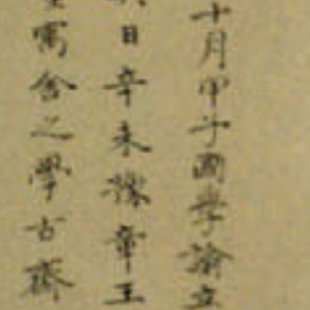 十月甲子國學諭立
日辛未豫章王
寓舍之學古齋